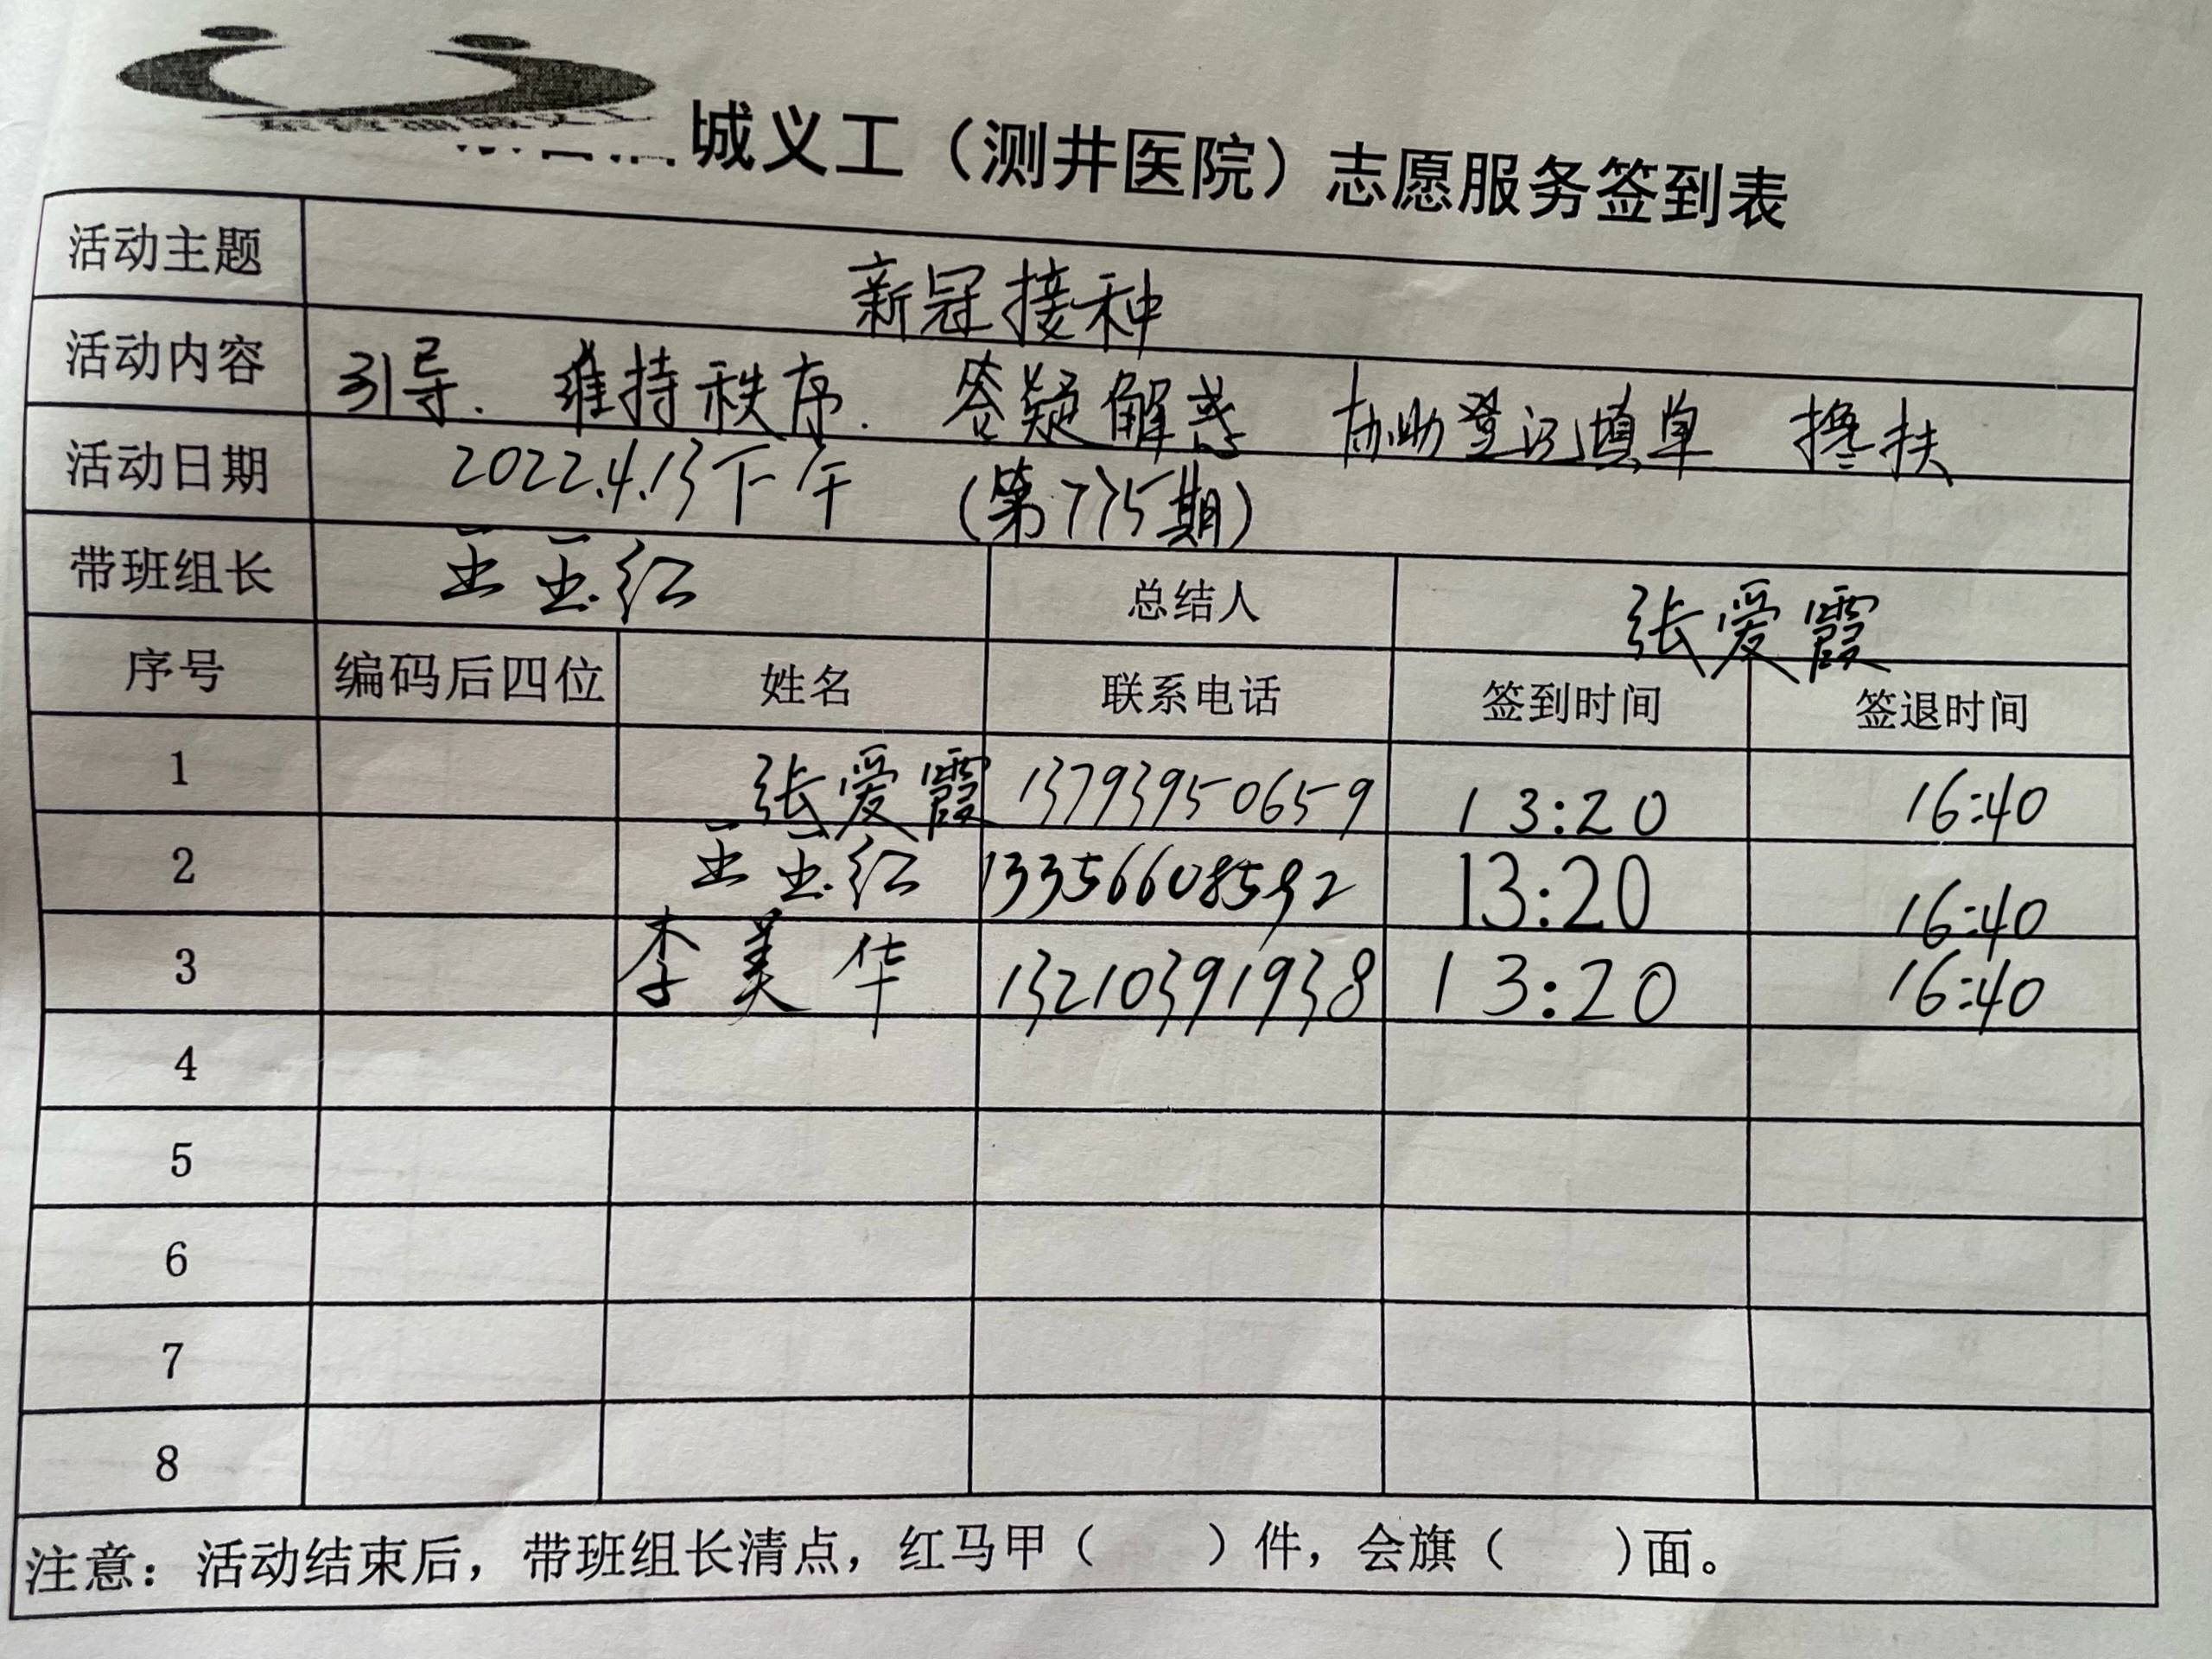 城义工（测井医院）志愿服务签到表
活动主题 新冠接种
活动内容 引导. 维持秩序. 答疑解惑 协助登记填单 搀扶
活动日期 2022.4.13下午 (第775期)
带班组长 王玉红 总结人 张爱霞
序号 编码后四位 姓名 联系电话 签到时间 签退时间
1 张爱霞 13793950659 13:20 16:40
2 王玉红 13356608592 13:20 16:40
3 李美华 13210391938 13:20 16:40
4
5
6
7
8
注意：活动结束后，带班组长清点，红马甲（ ）件，会旗（ )面。